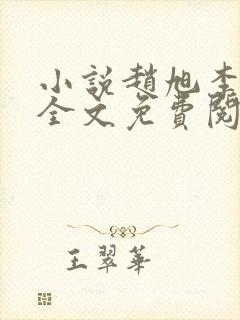 小説趙旭李
全文免費閱
王翠華